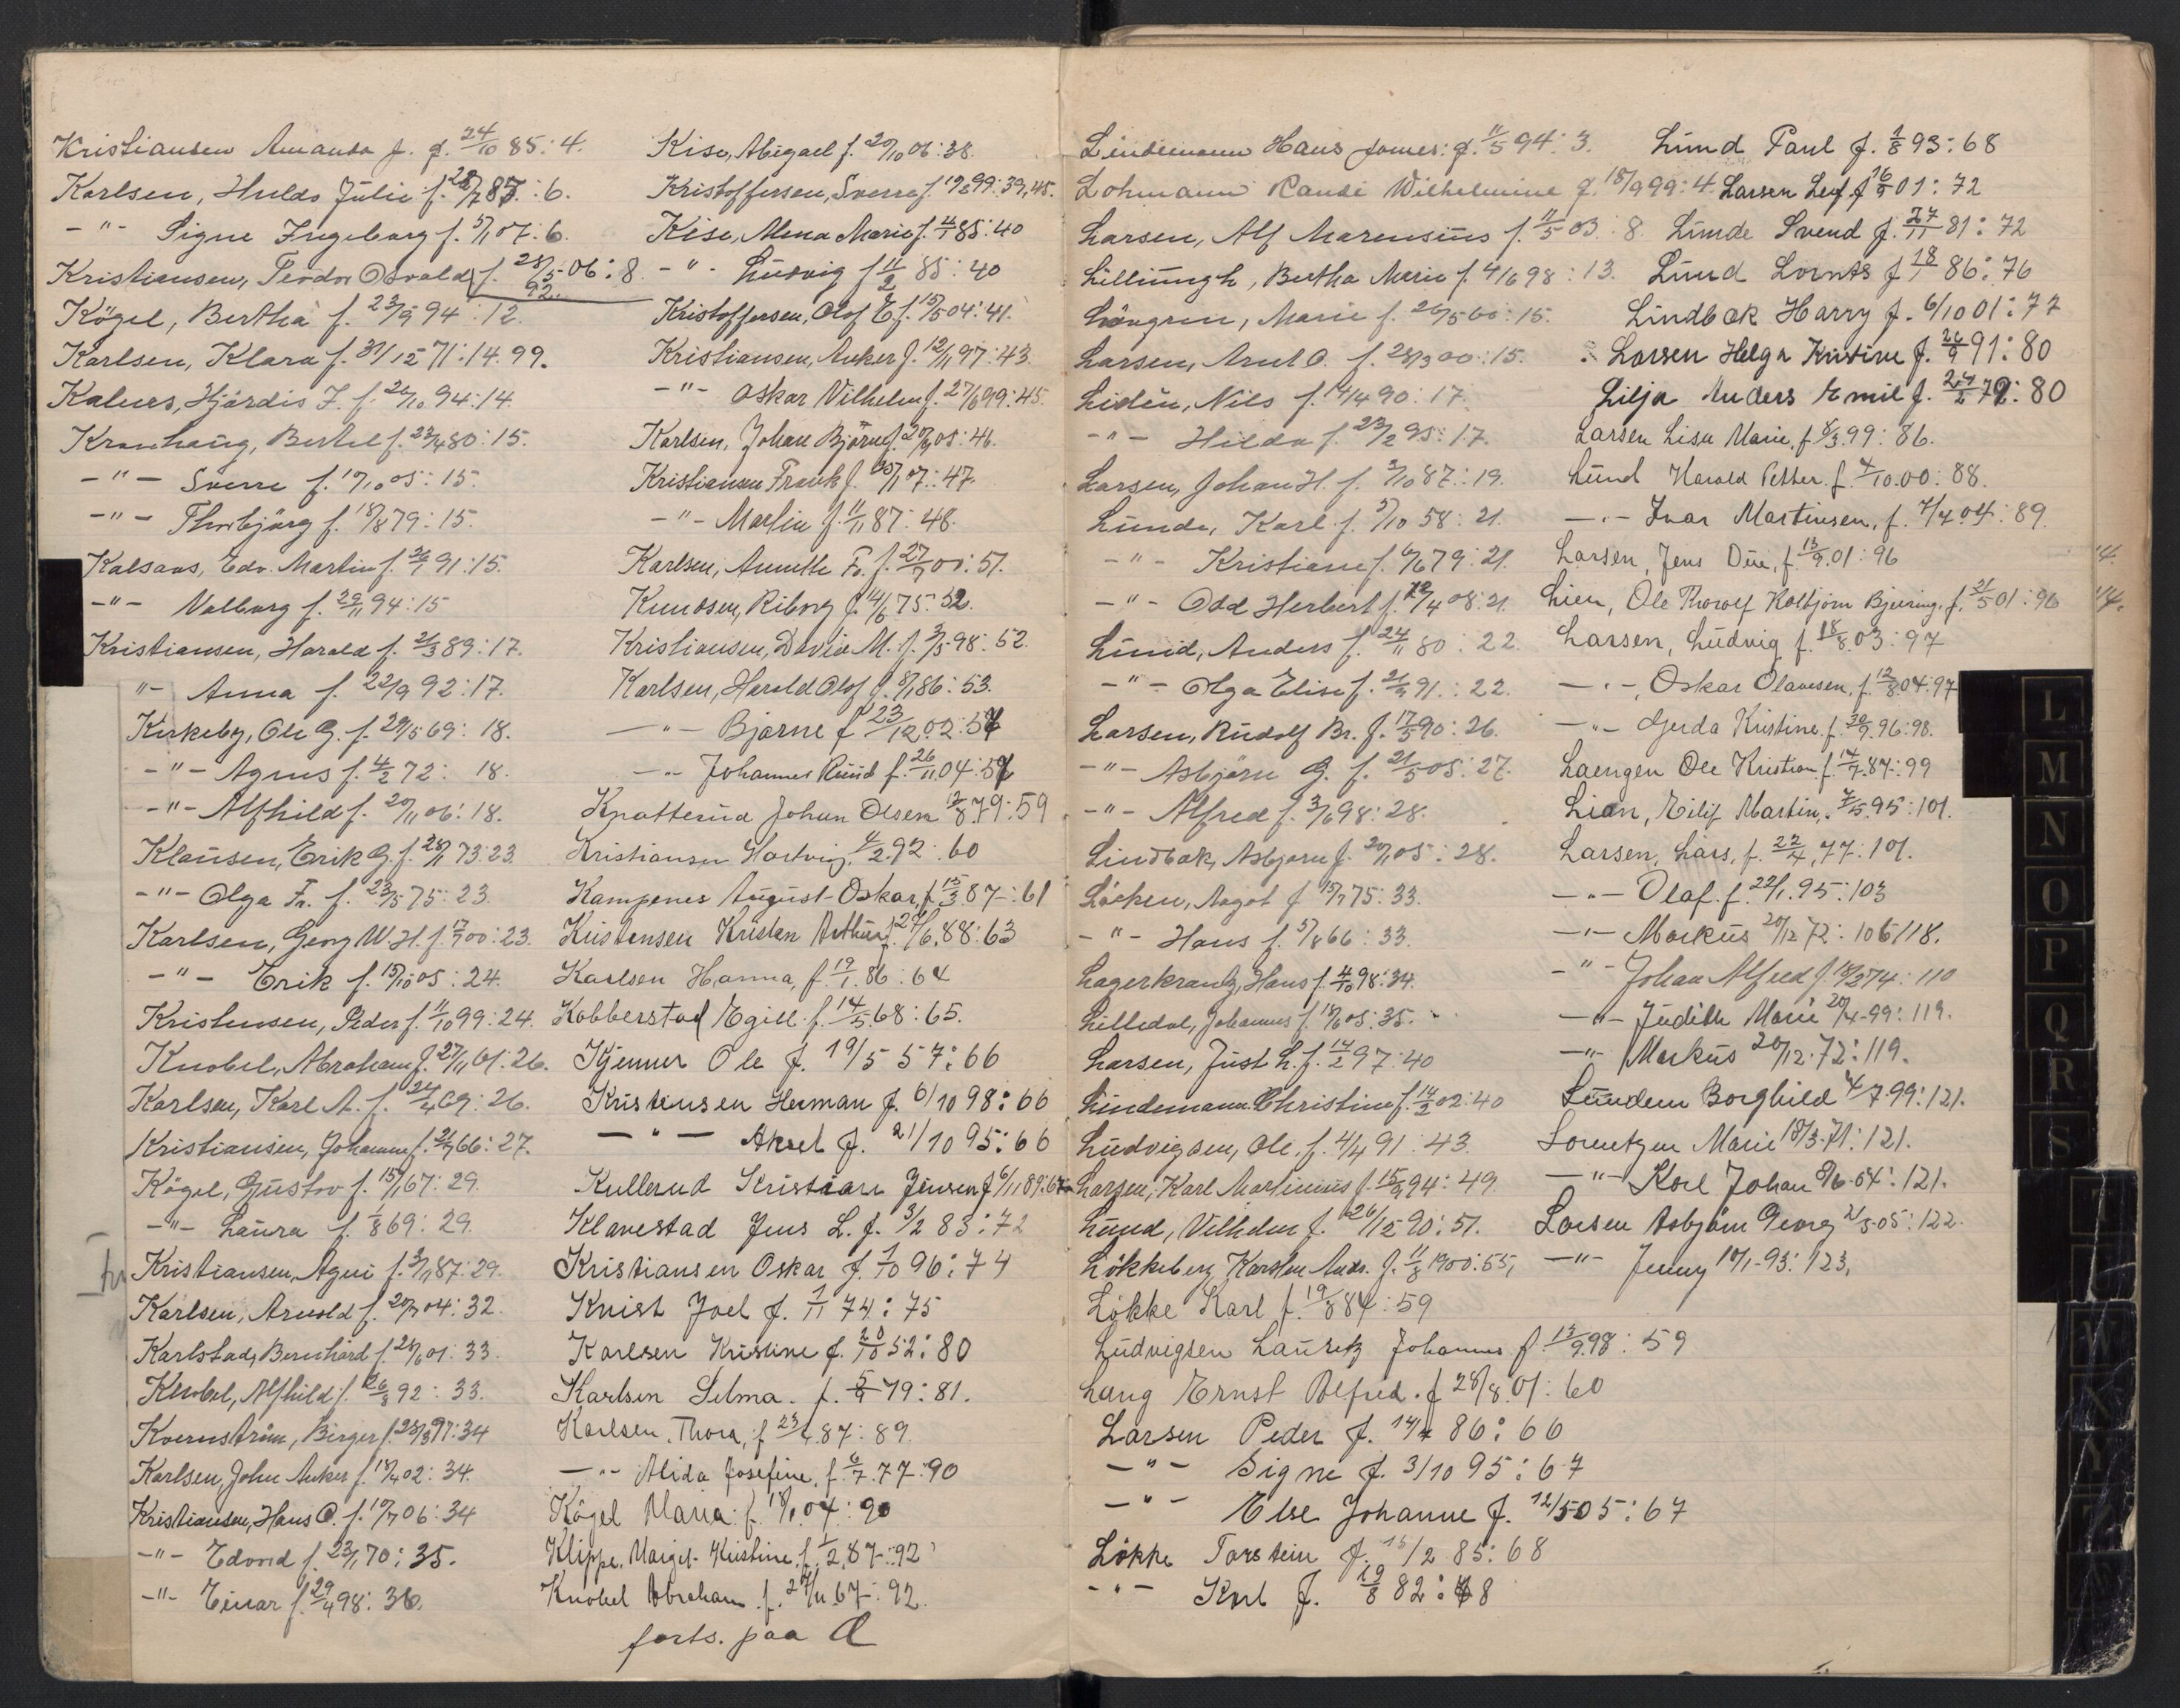 Kristiansen Amanda J. f. 24/10 85: 4.
Karlsen, Hulda Julie f. 28/7 87: 6.
-"- Signe Ingeborg f. 5/1 07: 6.
Kristiansen, Teodor Osvald f. 28/5 06: 8.
92.
Kögel, Bertha f. 23/9 94: 12.
Karlsen, Klara f. 31/12 71: 14. 99.
Kalnes, Hjördis J. f. 26/10 94: 14.
Kronhaug, Bertel f. 23/4 80: 15.
-"- Sverre f. 17/10 05: 15.
-"- Thorbjörg f. 18/8 79: 15.
Kalsaas, Edv. Martin f. 26/1 91: 15.
-"- Valborg f. 29/11 94: 15
Kristiansen, Harald f. 21/3 89: 17.
"- Anna f. 22/9 92: 17.
Kirkeby, Ole G. f. 29/5 69: 18.
-"- Agnes f. 4/2 72: 18.
-"- Alfhild f. 20/11 06: 18.
Klausen, Erik G. f. 28/11 73: 23.
-"- Olga Fr. f. 23/5 75: 23.
Karlsen, Georg W. H. f. 17/7 00: 23.
-"- Erik f. 15/10 05: 24.
Kristensen, Peder f. 11/10 99: 24.
Knobel, Abraham f. 27/11 61: 26.
Karlsen, Karl A. f. 24/4 69: 26.
Kristiansen, Johanne f. 21/7 66: 27.
Kögel, Gustav f. 15/1 67: 29.
-"- Laura f. 1/8 69: 29.
Kristiansen, Agni f. 3/11 87: 29.
Karlsen, Arnold f. 20/7 04: 32.
Karlstad, Bernhard f. 21/6 01: 33.
Knobel, Alfhild f. 26/8 92: 33.
Kvernström, Birger f. 28/3 97: 34
Karlsen, John Anker f. 18/4 02: 34.
Kristiansen, Hans C. f. 17/7 06: 34
-"- Edvard f. 23/1 70: 35.
-"- Einar f. 29/4 98: 36.
Kise, Abigael f. 20/10 06: 38.
Kristoffersen, Sverre f. 19/8 99: 39, 45.
Kise, Alma Marie f. 4/7 85: 40
-"- Ludvig f. 11/2 85: 40
Kristoffersen, Olof E. f. 15/5 04: 41.
Kristiansen, Anker f. 12/11 97: 43.
-"- Oskar Vilhelm f. 27/6 99: 45.
Karlsen, Johan Bjarne f. 20/9 05: 46.
Kristiansen Frank f. 30/1 07: 47.
-"- Martin f. 11/11 87: 48.
Karlsen, Annette Fr. f. 27/7 00: 51.
Knudsen, Riborg f. 14/6 75: 52.
Kristiansen, David M. f. 3/5 98: 52.
Karlsen, Harald Olof f. 8/1 86: 53.
-"- Bjarne f. 23/12 02: 54
-"- Johannes Ruud f. 26/11 04: 54
Knatterud Johan Olsen 12/8 79: 59
Kristiansen Hartvig 4/2 92: 60
Kampenes August Oskar f. 15/3 87: 61
Kristensen Kristen Arthur f. 27/6 88: 63
Karlsen Hanna, f. 19/1 86: 64
Kobberstad Egill f. 14/5 68: 65.
Kjenner Ole f. 19/5 57: 66
Kristensen Herman f. 6/10 98: 66
-"- Aksel f. 21/10 95: 66
Kullerud Kristian Jensen f. 6/11 89: 67
Klavestad Jens L. f. 3/2 83: 72
Kristiansen Oskar f. 1/10 96: 74
Knist Joel f. 1/11 74: 75
Karlsen Kristine f. 20/10 52: 80
Karlsen Selma. f. 5/9 79: 81.
Karlsen, Thora, f. 23/4 87: 89.
-"- Alida Josefine, f. 6/7 77: 90
Kögel Maria: f. 18/1 04: 90
Klippe, Margit Kristine, f. 1/2 87: 92
Knobel Abraham f. 27/11 67: 92.
forts. paa A
Lindemann Hans James: f. 11/5 94: 3.
Lohmann Randi Wilhelmine f. 18/9 99: 4.
Larsen, Alf Marensius f. 11/5 03: 8.
Lilliungh, Bertha Marie f. 4/6 98: 13.
Lövgren, Marie f. 26/5 60: 15.
Larsen, Arnt O. f. 28/3 00: 15.
Lidén, Nils f. 14/4 90: 17.
-"- Hilda f. 23/2 95: 17.
Larsen, Johan H. f. 3/10 87: 19.
Lunde, Karl f. 5/10 58: 21.
-"- Kristiane f. 6/6 79: 21.
-"- Odd Herbert f. 12/4 08: 21.
Lunid, Anders f. 24/11 80: 22.
-"- Olga Elise f. 21/9 91: 22.
Larsen, Rudolf Br. f. 17/5 90: 26.
-"- Asbjörn G. f. 21/5 05: 27.
-"- Alfred f. 3/6 98: 28.
Lindbak, Asbjørn f. 20/11 05: 28.
Löcken, Aagot f. 15/7 75: 33.
-"- Hans f. 5/8 66: 33.
Lagerkrantz, Hans f. 4/10 98: 34.
Lilledal, Johannes f. 18/6 05: 35.
Larsen, Just L. f. 14/2 97: 40
Lindemann Christine f. 14/2 02: 40
Ludvigsen, Ole. f. 4/4 91: 43.
Larsen, Karl Martinius f. 15/9 94: 49.
Lund, Vilhelm f. 26/12 90: 51.
Lökkeberg Karsten Andr. f. 11/8 1900: 55,
Lökke Karl f. 19/8 84: 59
Ludvigsen Lauritz Johannes f. 13/9 98: 59
Lang Ernst Alfred. f. 28/8 01: 60
Larsen Peder f. 14/4 86: 66
-"- Signe f. 3/10 95: 67
-"- Else Johanne f. 12/5 05: 67
Lökke Torstein f. 15/2 85: 68
-"- Karl f. 19/8 82: 68
Lund Paul f. 1/8 93: 68
Larsen Leif f. 16/9 01: 72
Linde Svend f. 27/11 81: 72
Lund Lornts f. 18/1 86: 76
Lindbak Harry f. 6/10 01: 77
Larsen Helga Kristine f. 26/9 91: 80
Lilja Anders Emil f. 24/2 72: 80
Larsen Lisa Marie, f. 8/3 99: 86.
Lund Harald Petter. f. 4/10 00: 88.
-"- Ivar Martinsen, f. 7/4 04: 89.
Larsen, Jens Due, f. 13/9 01: 96
Lien, Ole Thorolf Kolbjörn Bjering, f. 21/5 01: 96
Larsen, Ludvig f. 18/8 03: 97
-"-, Oskar Olavesen, f. 12/8 04: 97
-"- Gerda Kristine. f. 30/9 96: 98.
Laengen Ole Kristian f. 14/7 87: 99
Lian, Eilif Martin, 7/5 95: 101.
Larsen, Lars, f. 22/4 77: 101.
-"- Olaf. f. 22/1 95: 103
-"- Markus 20/12 72: 106/118.
-"- Johan Alfred f. 18/2 74: 110
-"- Judith Marie 20/4 99: 119.
-"- Markus 20/12 72: 119.
Lunden Borghild 4/7 99: 121.
Lorentzen Marie 18/3 71: 121.
-"- Karl Johan 8/6 64: 121.
Larsen Asbjörn Georg 21/5 05: 122.
-"- Jenny 10/1 93: 123,
14.
14.
L
M
N
O
P
Q
R
S
T